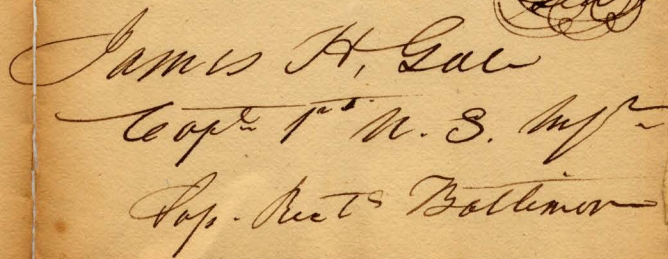 James H. Gale
Capt. 1st U. S. Infy
Sup. Rectg Baltimore